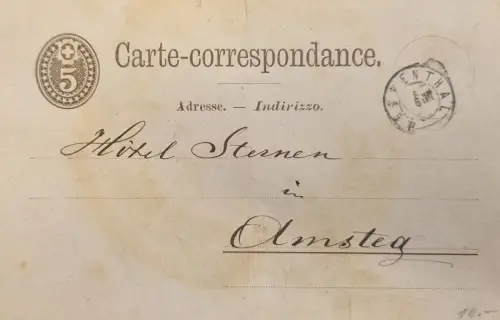 5
Carte-correspondance.
Adresse. — Indirizzo.
Hôtel Sternen
in
Amsteg
10.–